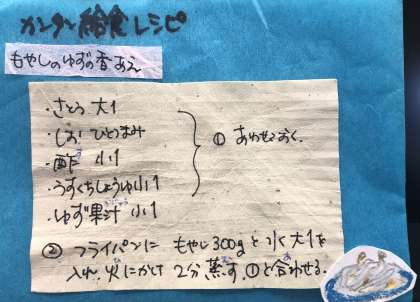 カンタン給食レシピ
もやしのゆずの香あえ
・さとう 大1
・しお ひとつまみ
・酢 小1
・うすくちしょうゆ小1
・ゆず果汁 小1
① あわせておく。
② フライパンに もやし300gと水大1を
入れ、火にかけて 2分蒸す。①と合わせる。